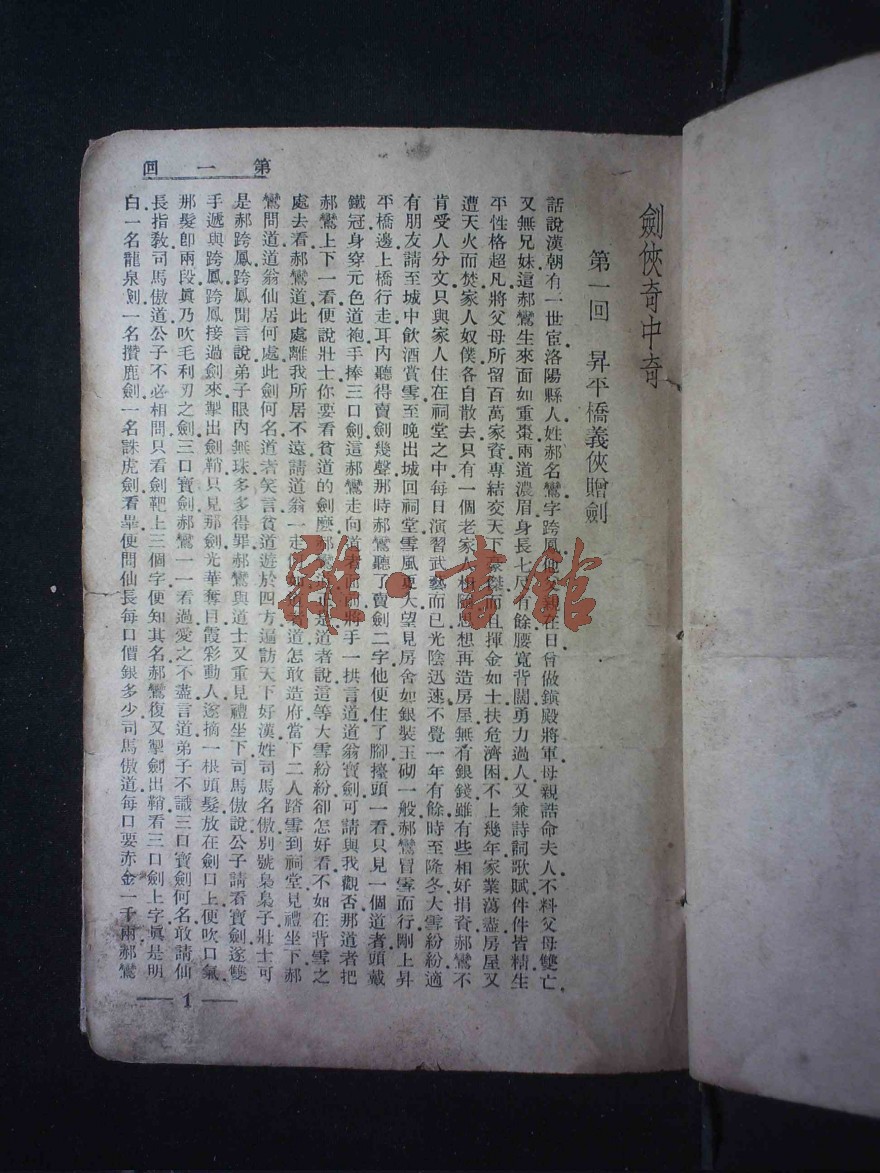 劍俠奇中奇
第一回　昇平橋義俠贈劍
話說漢朝有一世宦洛陽縣人姓郝名鸞字跨鳳他父親在日曾做鎭殿將軍母親誥命夫人不料父母雙亡
又無兄妹這郝鸞生來面如重棗兩道濃眉身長七尺有餘腰寬背闊勇力過人又兼詩詞歌賦件件皆精生
平性格超凡將父母所留百萬家資專結交天下豪傑而且揮金如土扶危濟困不上幾年家業蕩盡房屋又
遭天火而焚家人奴僕各自散去只有一個老家人相隨思想再造房屋無有銀錢雖有些相好捐資郝鸞不
肯受人分文只與家人住在祠堂之中每日演習武藝而已光陰迅速不覺一年有餘時至隆冬大雪紛紛適
有朋友請至城中飲酒賞雪至晚出城回祠堂雪風更大望見房舍如銀裝玉砌一般郝鸞冒雪而行剛上昇
平橋邊上橋行走耳內聽得賣劍幾聲那時郝鸞聽了賣劍二字他便住了腳擡頭一看只見一個道者頭戴
鐵冠身穿元色道袍手捧三口劍這郝鸞走向道者面前將手一拱言道道翁寶劍可請與我觀否那道者把
郝鸞上下一看便說壯士你要看貧道的劍麽郝鸞道正是道者說這等大雪紛紛卻怎好看不如在背雪之
處去看郝鸞道此處離我所居不遠請道翁一走道道怎敢造府當下二人踏雪到祠堂見禮坐下郝
鸞問道道翁仙居何處此劍何名道者笑言貧道遊於四方遍訪天下好漢姓司馬名傲別號梟梟子壯士可
是郝跨鳳跨鳳聞言說弟子眼內無珠多多得罪郝鸞與道士又重見禮坐下司馬傲說公子請看寶劍遂雙
手遞與跨鳳跨鳳接過劍來掣出劍鞘只見那劍光華奪目霞彩動人遂摘一根頭髮放在劍口上便吹口氣
那髮卽兩段眞乃吹毛利刃之劍三口寶劍郝鸞一一看過愛之不盡言道弟子不識三口寶劍何名敢請仙
長指敎司馬傲道公子不必相問只看劍靶上三個字便知其名郝鸞復又掣劍出鞘看三口劍上字眞是明
白一名龍泉劍一名攢鹿劍一名誅虎劍看畢便問仙長每口價銀多少司馬傲道每口要赤金一千兩郝鸞
第一回
1
雜·書館